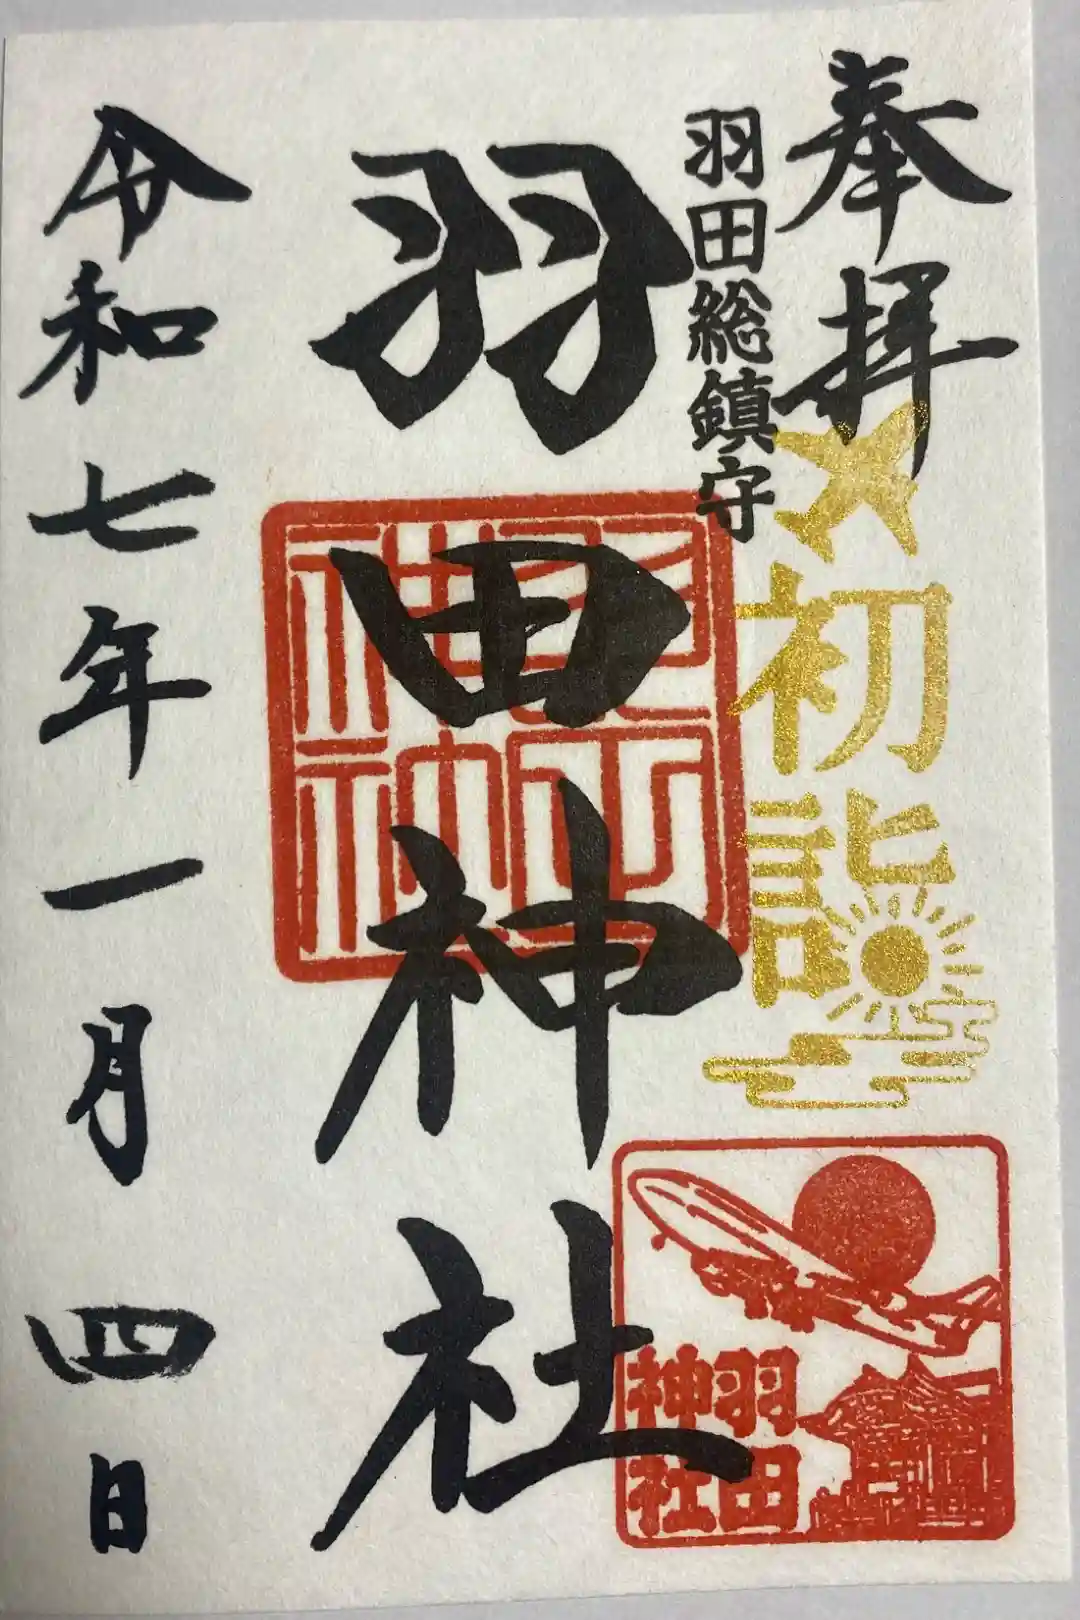 奉拝
羽田総鎮守
初詣
羽田神社
羽田
神社
令和七年一月四日